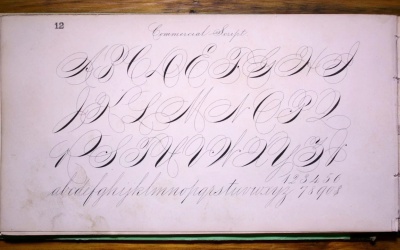 12
Commercial Script
A B C D E F G H I
J K L M N O P Q
R S T U V W X Y Z &
abcdefghijklmnopqrstuvwxyz 1234567890